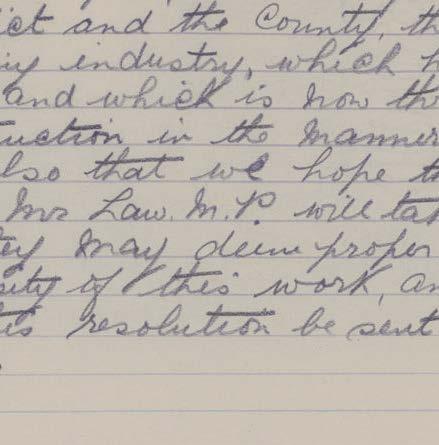 ict and the County, th
industry, which h
and which is now thr
uction in the Manner
lso that we hope th
Mrs Law. M.P. will tak
ey May deem proper
sity of this work, an
is resolution be sent